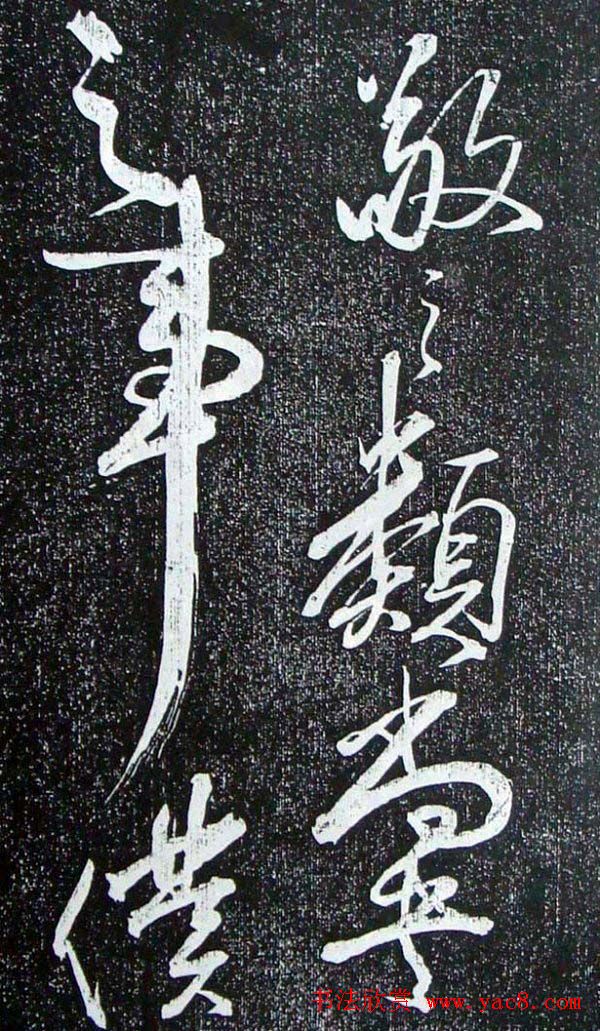 之類
之事僕
书法欣赏 www.yac8.com